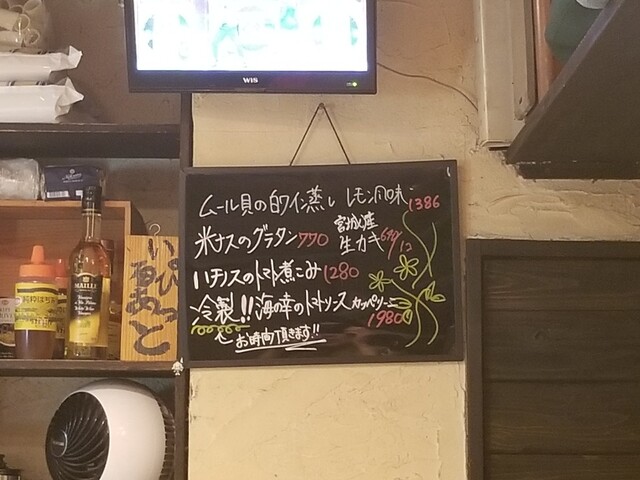 WIS
ムール貝の白ワイン蒸し レモン風味 1386
米ナスのグラタン 770 宮城産 生カキ 640/1コ
ハチノスのトマト煮こみ 1280
冷製!! 海の幸のトマトソース カッペリーニ 1980
お時間頂きます!!
MAILLE
純粋はちみつ